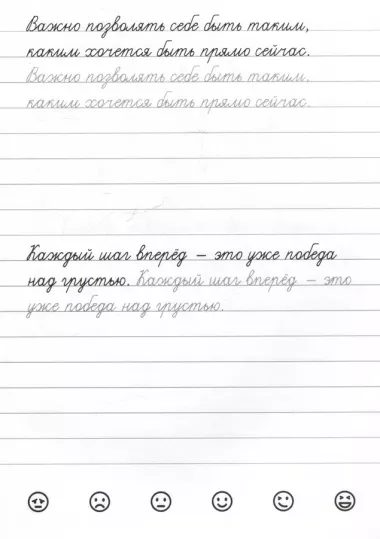 Важно позволять себе быть таким,
каким хочется быть прямо сейчас.
Важно позволять себе быть таким,
каким хочется быть прямо сейчас.
Каждый шаг вперёд – это уже победа
над грустью. Каждый шаг вперёд – это
уже победа над грустью.